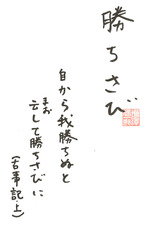 勝ちさび
自から我勝ちぬと
まお
云して勝ちさびに
(古事記上)